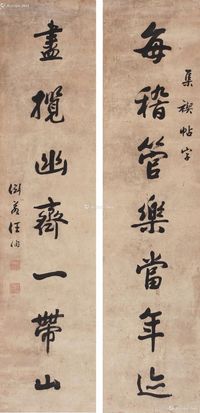 每稽管樂當年迹
集禊帖字
盡攬幽齊一帶山
汪洵